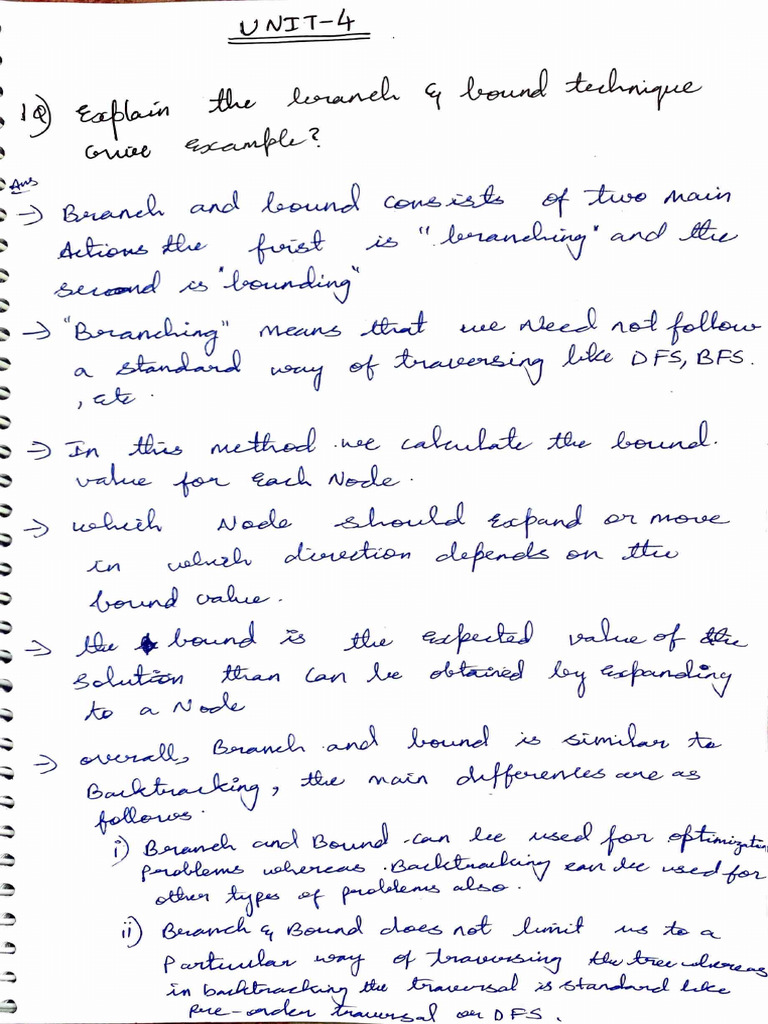 UNIT-4
1Q) Explain the branch & bound technique
give example?
Ans
→ Branch and bound consists of two main
Actions the first is "branching" and the
second is "bounding"
→ "Branching" means that we Need not follow
a standard way of traversing like DFS, BFS.
, etc.
→ In this method we calculate the bound.
value for each Node.
→ which Node should expand or move
in which direction depends on the
bound value.
→ the bound is the expected value of the
solution than can be obtained by expanding
to a Node
→ overall, Branch and bound is similar to
Backtracking, the main differences are as
follows.
i) Branch and Bound can be used for optimization
problems whereas Backtracking can be used for
other types of problems also.
ii) Branch & Bound does not limit us to a
particular way of traversing the tree whereas
in backtracking the traversal is standard like
pre-order traversal or DFS.